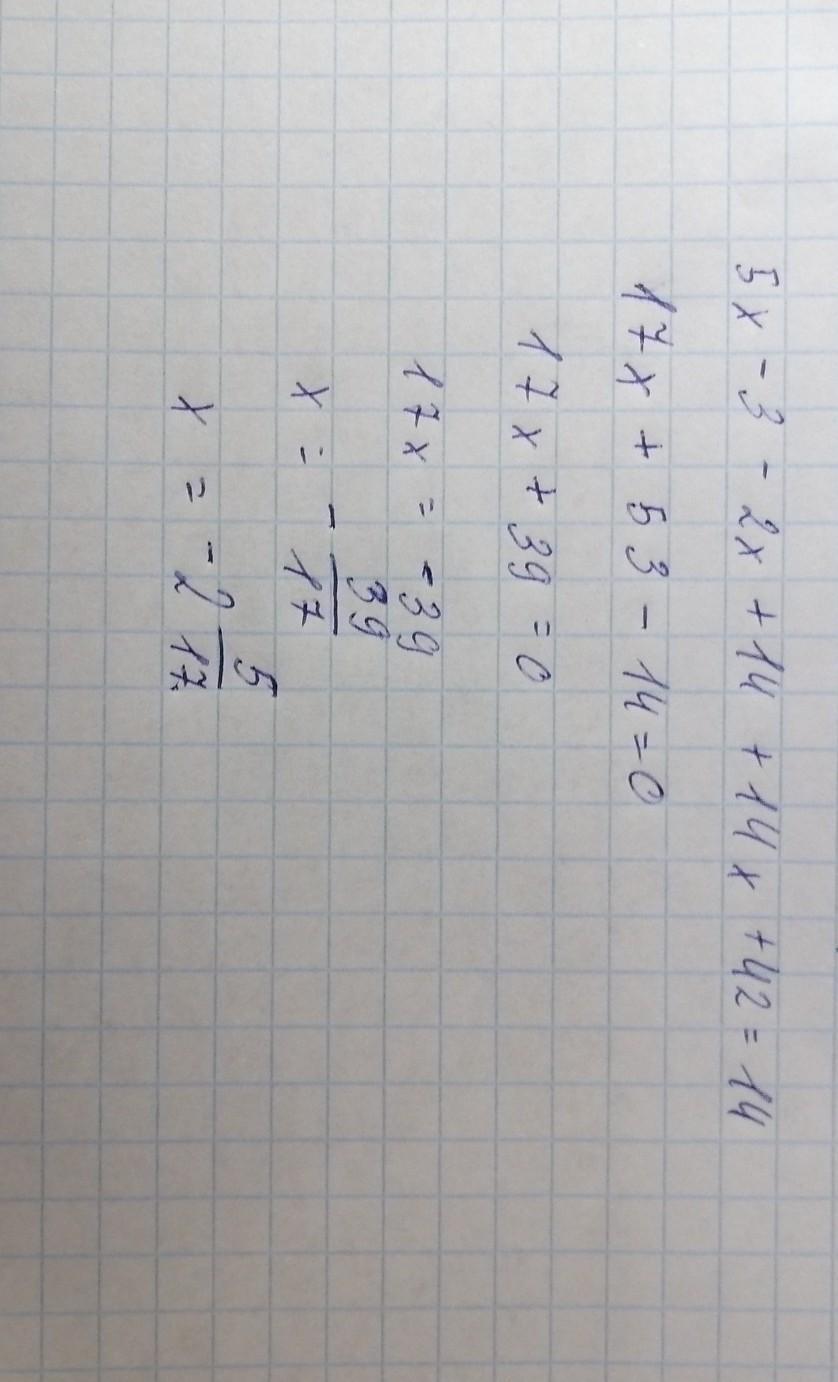 5x - 3 - 2x + 14 + 14x + 42 = 14
17x + 53 - 14 = 0
17x + 39 = 0
17x = -39
x = - 39/17
x = -2 5/17